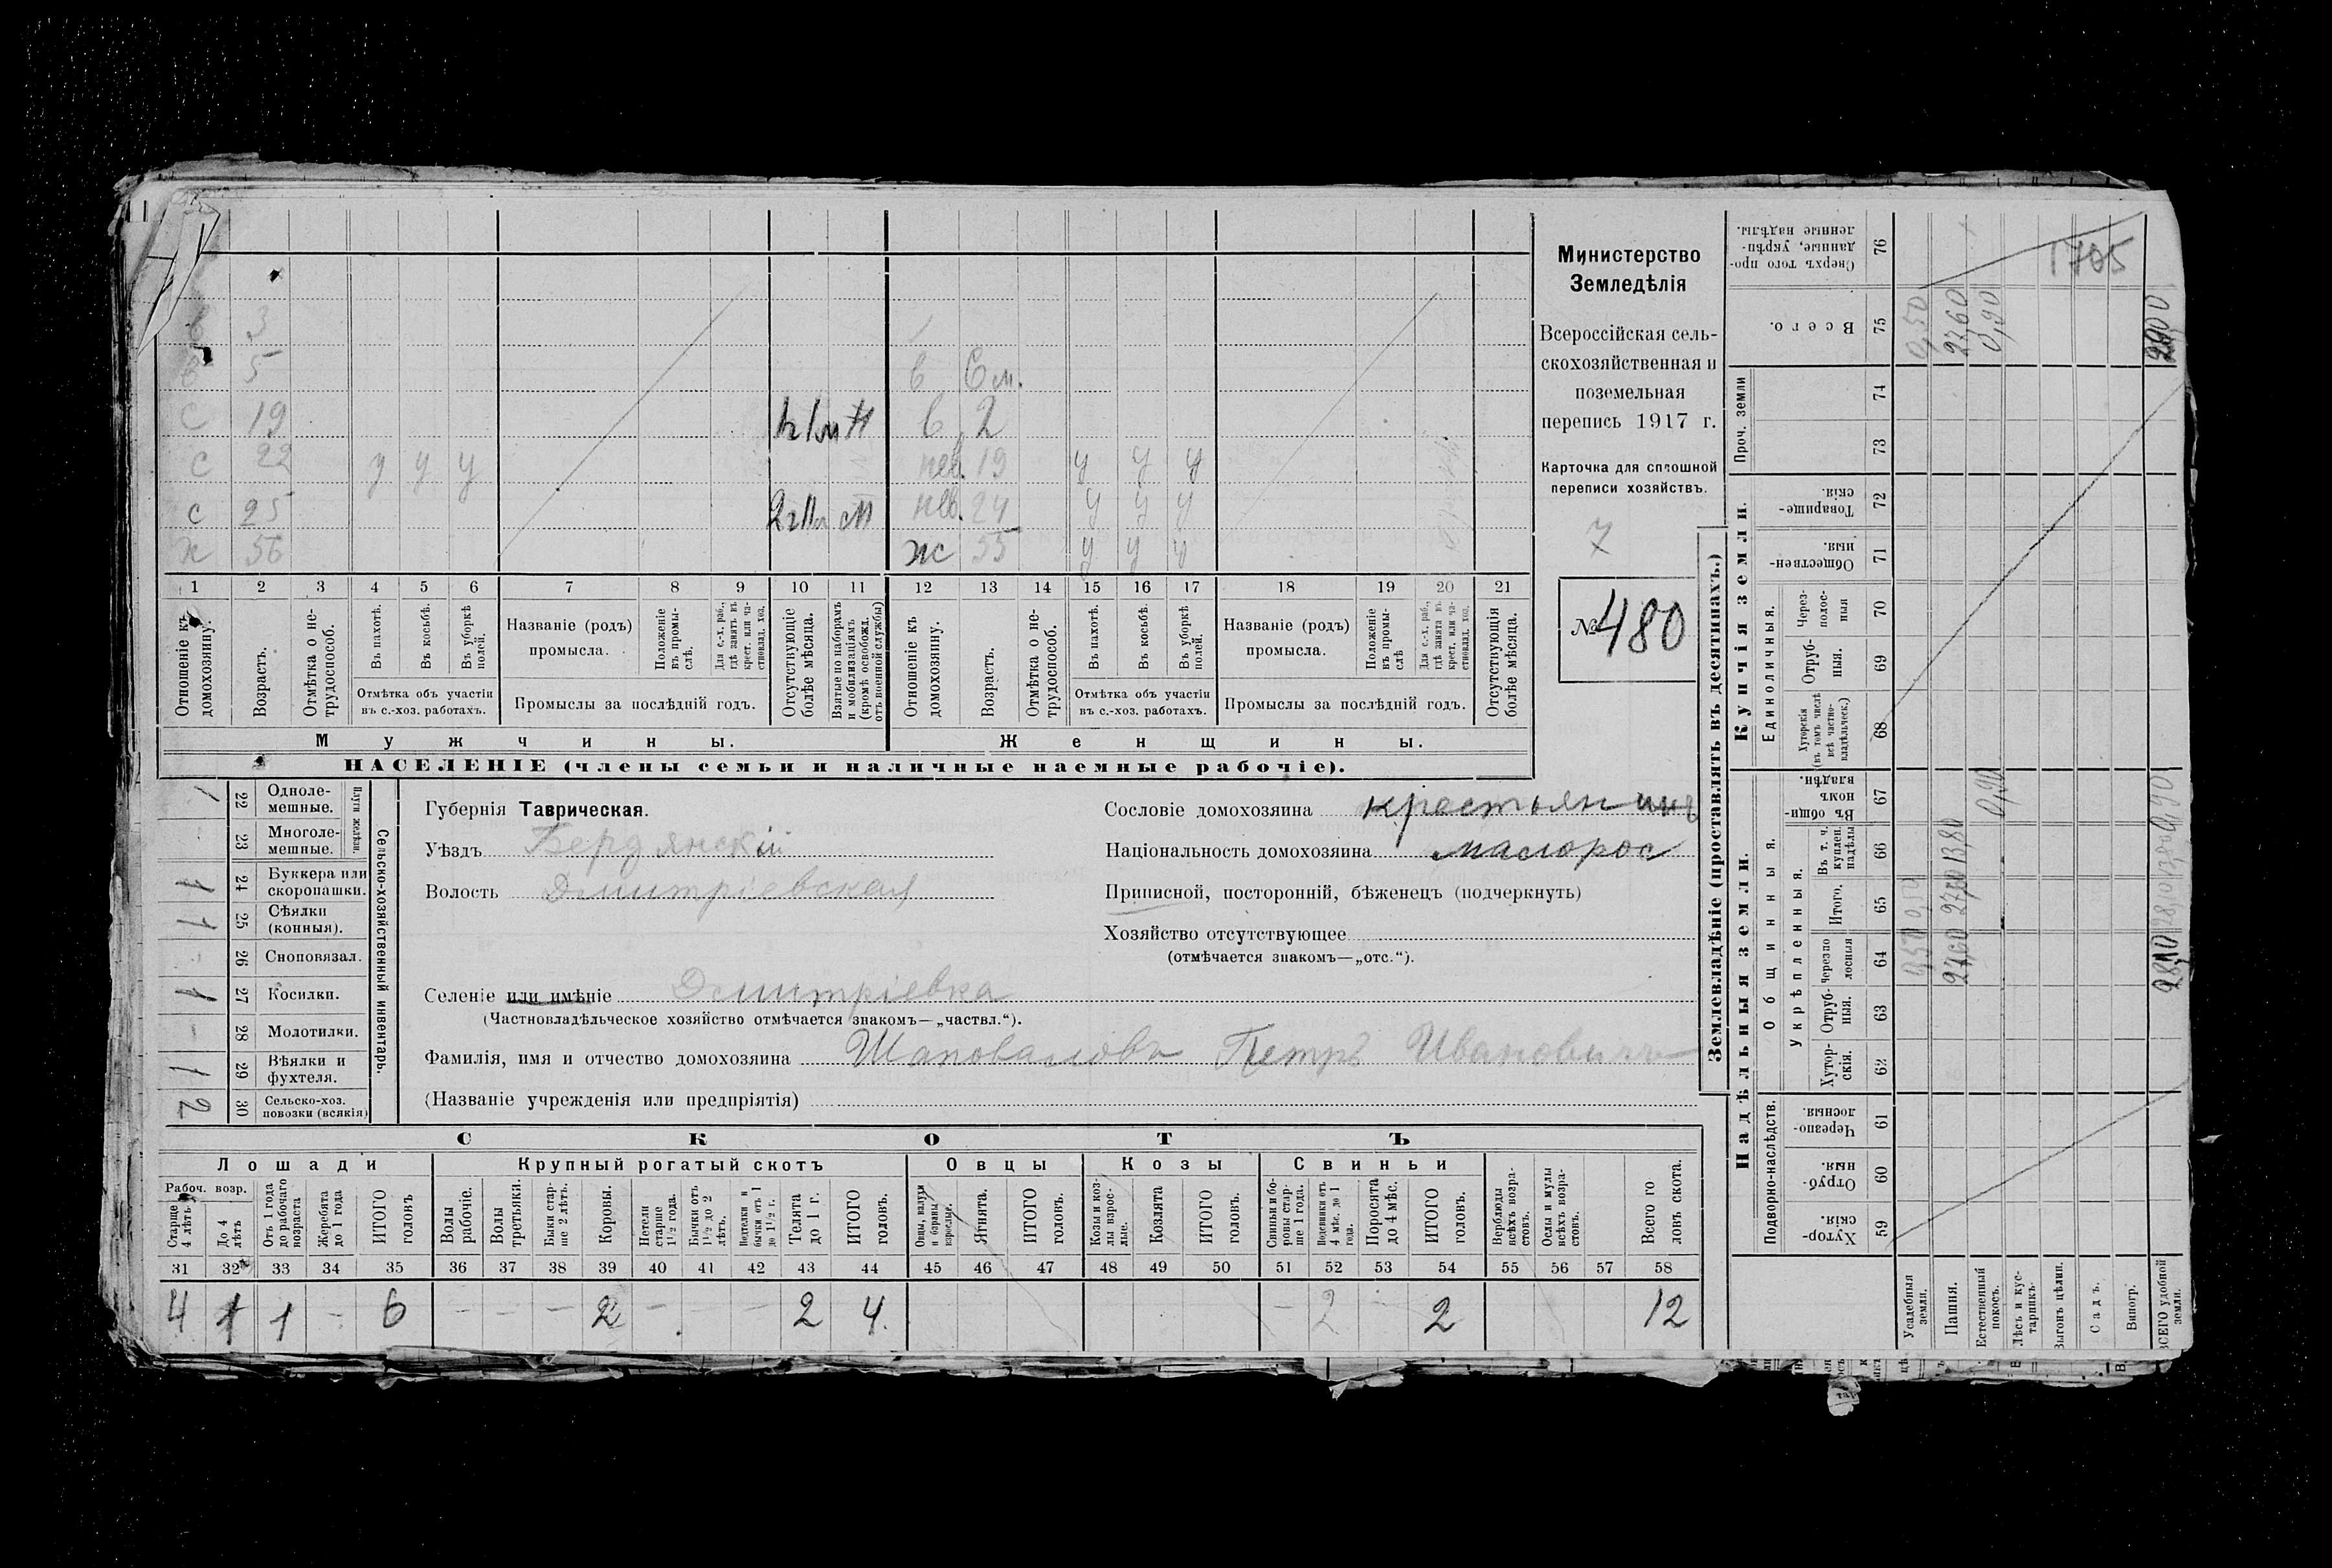 Министерство
Земледѣлія
Всероссійская сель-
скохозяйственная и
поземельная
перепись 1917 г.
Карточка для сплошной
переписи хозяйствъ.
7
№ 480
в 3
в 5 в 6 м.
с 19 Н в 2
с 22 у у у нев. 19 у у у
с 25 нев. 24 у у у
х 56 ж 55 у у у
1 2 3 4 5 6 7 8 9 10 11 12 13 14 15 16 17 18 19 20 21
Отношеніе къ домохозяину.
Возрастъ.
Отмѣтка о не-
трудоспособ.
Въ пахотѣ.
Въ косьбѣ.
Въ уборкѣ полей.
Отмѣтка объ участіи
въ с.-хоз. работахъ.
Названіе (родъ)
промысла.
Положеніе
въ промы-
слѣ.
Для с.-х. раб.,
гдѣ занятъ въ
крест. или ча-
стновлад. хоз.
Промыслы за послѣдній годъ.
Отсутствующіе
болѣе мѣсяца.
Взятые по наборамъ
и мобилизаціямъ
(кромѣ освобожд.
отъ военной службы)
Отношеніе къ
домохозяину.
Возрастъ.
Отмѣтка о не-
трудоспособ.
Въ пахотѣ.
Въ косьбѣ.
Въ уборкѣ
полей.
Отмѣтка объ участіи
въ с.-хоз. работахъ.
Названіе (родъ)
промысла.
Положеніе
въ промы-
слѣ
Для с.-х. раб.,
гдѣ занята въ
крест. или ча-
стновлад. хоз.
Промыслы за послѣдній годъ.
Отсутствующія
болѣе мѣсяца.
Мужчины.
Женщины.
НАСЕЛЕНІЕ (члены семьи и наличные наемные рабочіе).
Сельско-хозяйственный инвентарь.
Плуги желѣзн.
1 22 Одноле-
мешные.
- 23 Многоле-
мешные.
1 24 Буккера или
скоропашки.
1 25 Сѣялки
(конныя).
- 26 Сноповязал.
1 27 Косилки.
- 28 Молотилки.
1 29 Вѣялки и
фухтеля.
2 30 Сельско-хоз.
повозки (всякія)
Губернія Таврическая.
Уѣздъ Бердянскій
Волость Дмитріевская
Сословіе домохозяина крестьянинъ
Національность домохозяина малорос
Приписной, посторонній, бѣженецъ (подчеркнуть)
Хозяйство отсутствующее
(отмѣчается знакомъ—„отс.“).
Селеніе или имѣніе Дмитріевка
(Частновладѣльческое хозяйство отмѣчается знакомъ—„частвл.“).
Фамилія, имя и отчество домохозяина Шаповаловъ Петръ Ивановичъ
(Названіе учрежденія или предпріятія)
СКОТЪ
Лошади
Крупный рогатый скотъ
Овцы
Козы
Свиньи
Рабоч. возр.
Старше
4 лѣтъ
До 4
лѣтъ
Отъ 1 года
до рабочаго
возраста
Жеребята
до 1 года
ИТОГО
головъ
Волы
рабочіе.
Волы
третьяки.
Быки стар-
ше 2 лѣтъ.
Коровы.
Нетели
старше
1½ года.
Бычки отъ
1½ до 2
лѣтъ.
Нетелки и
бычки отъ 1
до 1½ г.
Телята
до 1 г.
ИТОГО
головъ.
Овцы, валухи
и бараны
взрослые.
Ягнята.
ИТОГО
головъ.
Козы и коз-
лы взрос-
лые.
Козлята
ИТОГО
головъ.
Свиньи и бо-
ровы стар-
ше 1 года.
Подсвинки отъ
4 мѣс. до 1
года.
Поросята
до 4 мѣс.
ИТОГО
головъ.
Верблюды
всѣхъ возра-
стовъ.
Ослы и мулы
всѣхъ возра-
стовъ.
Всего го
ловъ скота.
31 32 33 34 35 36 37 38 39 40 41 42 43 44 45 46 47 48 49 50 51 52 53 54 55 56 57 58
4 1 1 - 6 - - - 2 - - - 2 4 - 2 - 2 12
Землевладѣніе (проставлять въ десятинахъ.)
Надѣльныя земли.
Купчія земли.
Проч. земли
Подворно-наслѣдств.
Общинныя.
Укрѣпленныя.
Единоличныя.
Сверхъ того про-
данные, укрѣп-
ленные надѣлы. 76
Всего. 75
74
73
Товарище-
скія. 72
Обществен-
ныя. 71
Через-
полос-
ныя 70
Отруб-
ныя. 69
Хуторскія
(въ томъ числѣ
всѣ частно-
владѣльческ.) 68
Въ общи-
номъ
владѣн. 67
Въ т. ч.
куплен.
надѣлы 66
Итого. 65
Черезпо
лосныя 64
Отруб-
ныя. 63
Хутор-
скія. 62
Черезпо-
лосныя. 61
Отруб-
ныя. 60
Хутор-
скія. 59
Усадебныя
земли.
Пашня.
Естественный
покосъ.
Лѣсъ и кус-
тарникъ.
Выгонъ цѣлин.
Садъ.
Виногр.
ВСЕГО удобной
земли.
1705
0,50
27,60
0,90
0,90
27,60 27,60 13,80
28,10